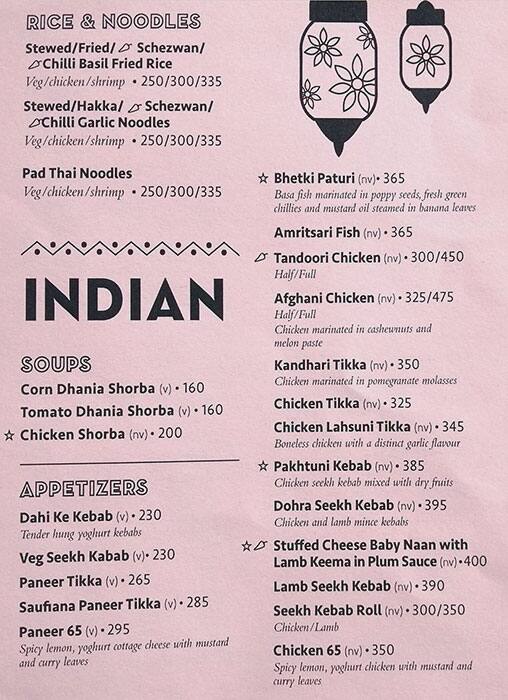 RICE & NOODLES
Stewed/Fried/ Schezwan/
Chilli Basil Fried Rice
Veg/chicken/shrimp • 250/300/335
Stewed/Hakka/ Schezwan/
Chilli Garlic Noodles
Veg/chicken/shrimp • 250/300/335
Pad Thai Noodles
Veg/chicken/shrimp • 250/300/335
INDIAN
SOUPS
Corn Dhania Shorba (v) • 160
Tomato Dhania Shorba (v) • 160
☆ Chicken Shorba (nv) • 200
APPETIZERS
Dahi Ke Kebab (v) • 230
Tender hung yoghurt kebabs
Veg Seekh Kabab (v) • 230
Paneer Tikka (v) • 265
Saufiana Paneer Tikka (v) • 285
Paneer 65 (v) • 295
Spicy lemon, yoghurt cottage cheese with mustard
and curry leaves
☆ Bhetki Paturi (nv) • 365
Basa fish marinated in poppy seeds, fresh green
chillies and mustard oil steamed in banana leaves
Amritsari Fish (nv) • 365
Tandoori Chicken (nv) • 300/450
Half/Full
Afghani Chicken (nv) • 325/475
Half/Full
Chicken marinated in cashewnuts and
melon paste
Kandhari Tikka (nv) • 350
Chicken marinated in pomegranate molasses
Chicken Tikka (nv) • 325
Chicken Lahsuni Tikka (nv) • 345
Boneless chicken with a distinct garlic flavour
☆ Pakhtuni Kebab (nv) • 385
Chicken seekh kebab mixed with dry fruits
Dohra Seekh Kebab (nv) • 395
Chicken and lamb mince kebabs
☆ Stuffed Cheese Baby Naan with
Lamb Keema in Plum Sauce (nv) • 400
Lamb Seekh Kebab (nv) • 390
Seekh Kebab Roll (nv) • 300/350
Chicken/Lamb
Chicken 65 (nv) • 350
Spicy lemon, yoghurt chicken with mustard and
curry leaves